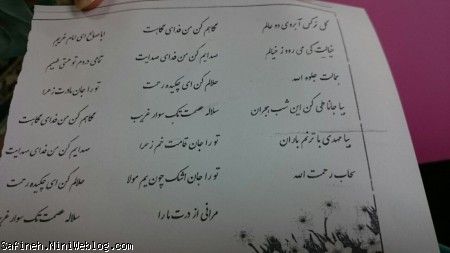 گل نرگس آبروی دو عالم
خیالت کی می رود ز خیالم
جمالت جلوه الله
بیا جانا طی کن این شب هجران
بیا مهدی با ترنم باران
سحاب رحمت الله
نگاهم کن من فدای نگاهت
صدایم کن من فدای صدایت
حلالم کن ای چکیده رحمت
سلاله عصمت تک سوار غریب
تو را جان قامت خم زهرا
تو را جان اشک چون یم مولا
مرانی از درت ما را
اباصالح ای امام غریبم
تمامی دردم تو هستی طبیبم
تو را جان مادرت زهرا
نگاهم کن من فدای نگاهت
صدایم کن من فدای صدایت
حلالم کن ای چکیده رحمت
سلاله عصمت تک سوار
Safineh.MiniWeblog.com